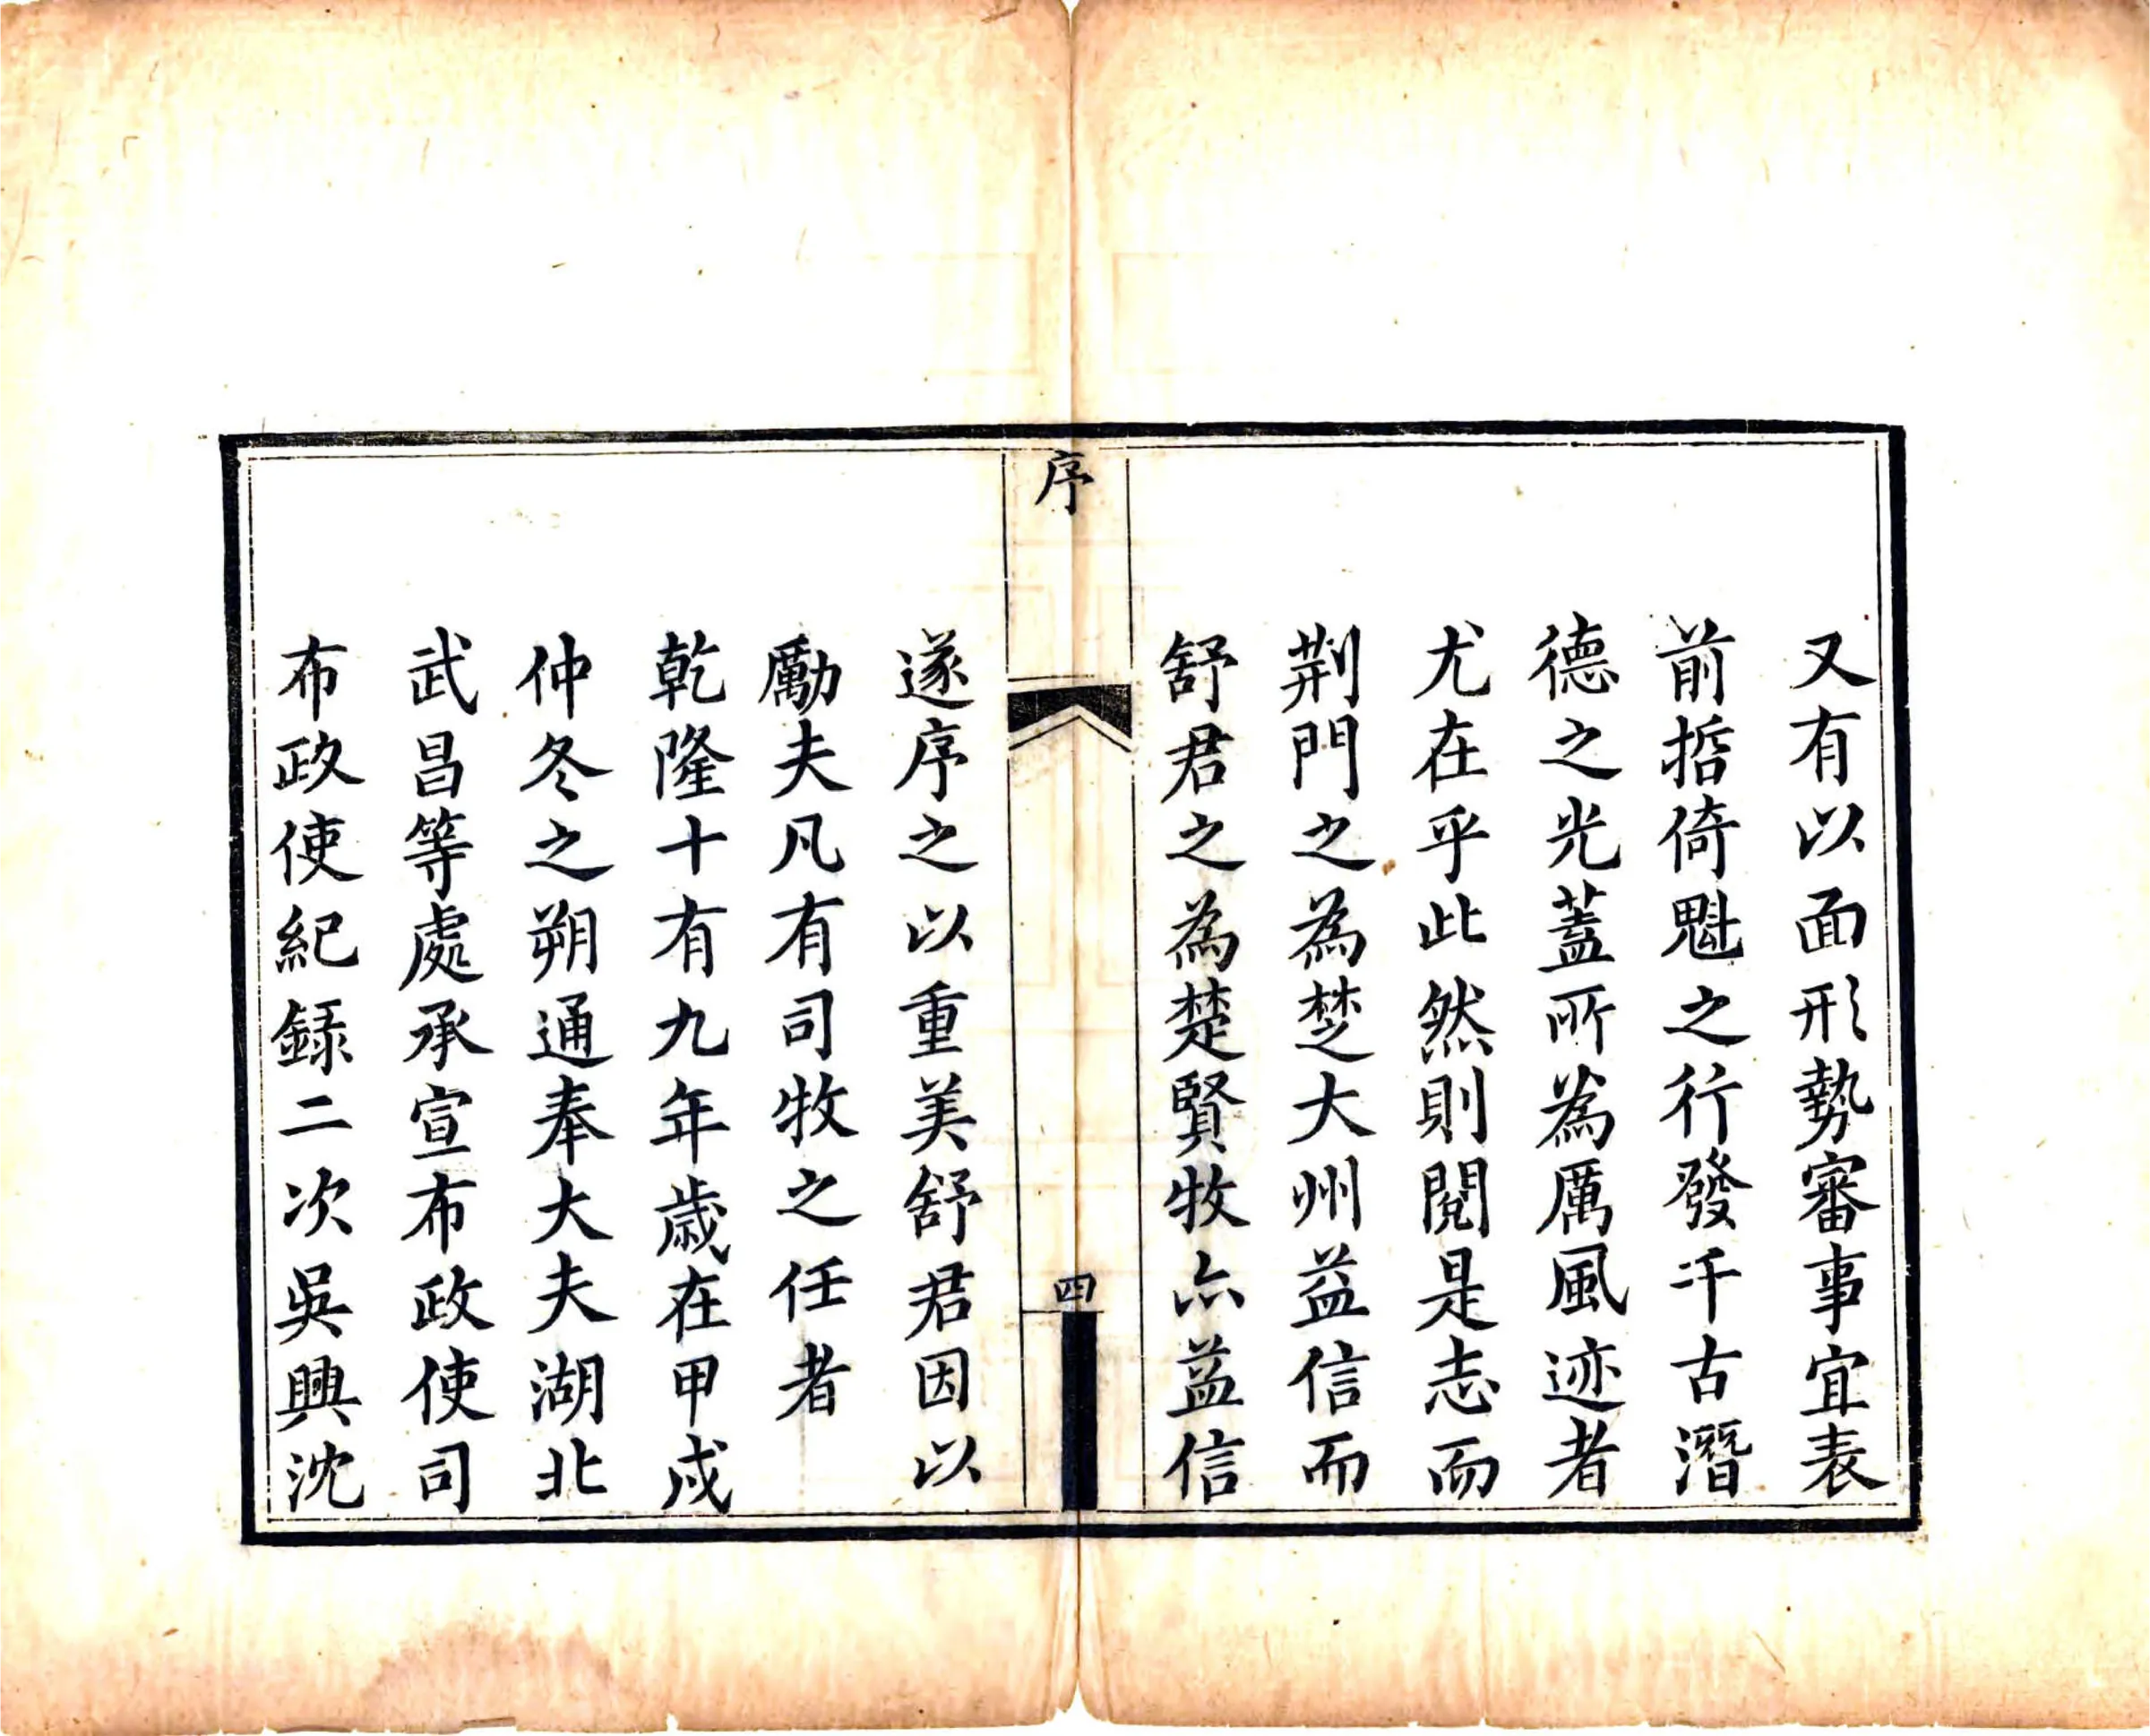 又有以面形勢審事宜表
前哲倚魁之行發千古潛
德之光蓋所為厲風迹者
尤在乎此然則閱是志而
荆門之為楚大州益信而
舒君之為楚賢牧亦益信
序
四
遂序之以重美舒君因以
勵夫凡有司牧之任者
乾隆十有九年歲在甲戌
仲冬之朔通奉大夫湖北
武昌等處承宣布政使司
布政使紀録二次吳興沈